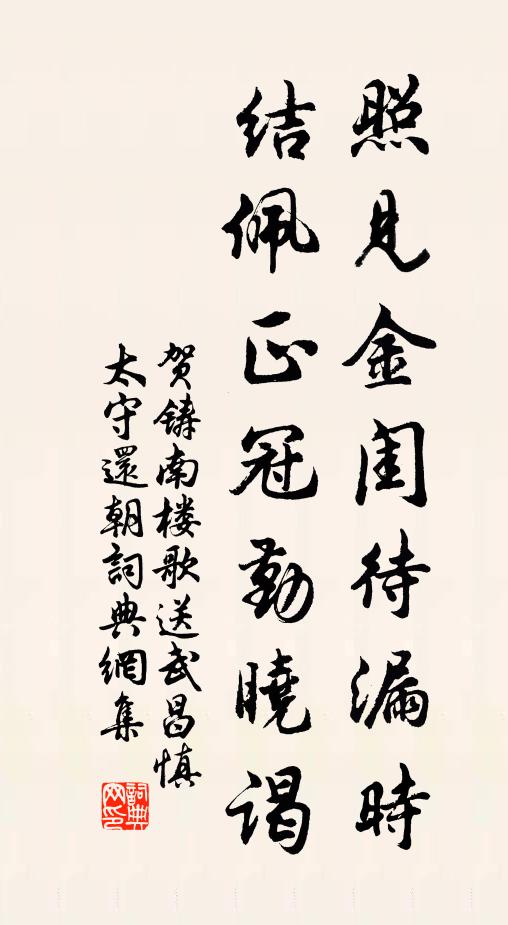 照見金閨待漏時
結佩正冠勤曉謁
贺鑄南楼歌送武昌慎
太守還朝詞典網集
詞典
网印